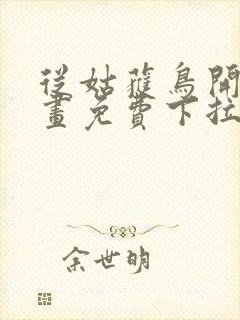 從姑蘿鳥開
畫免費下拉
余世明